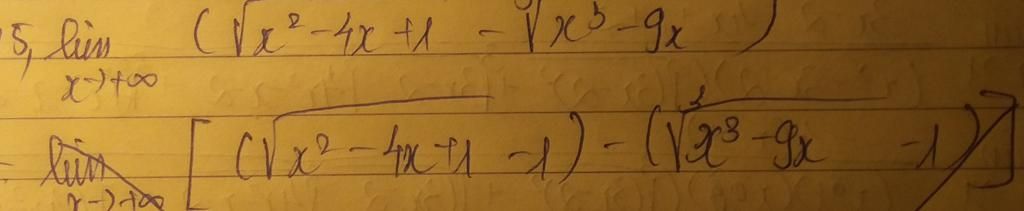 5, lim (√x² - 4x + 1 - ³√x³ - 9x)
x→+∞
lim [(√x² - 4x + 1 - 1) - (³√x³ - 9x - 1)]
x→+∞